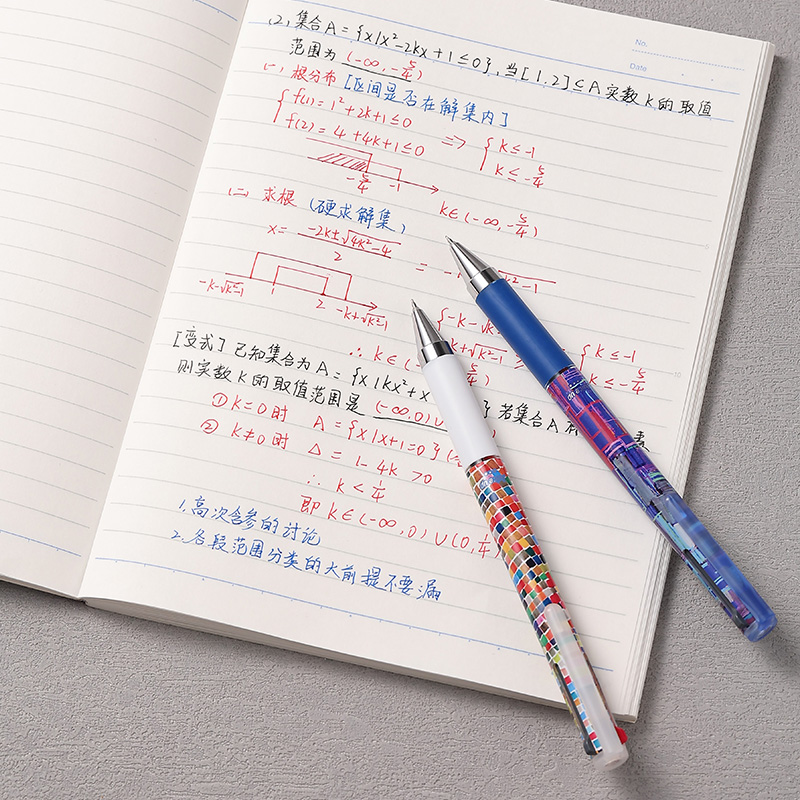 No.
Date
(2) 集合A={x|x²-2kx+1≤0},当[1,2]≤A实数k的取值
范围为(-∞,-5/4)
(一)根分布[区间是否在解集内]
f(1)=1²+2k+1≤0
f(2)=4+4k+1≤0 => { k≤-1
k≤-5/4
-5/4 -1
k∈(-∞,-5/4)
(二)求根(硬求解集)
x= -2k±√4k²-4 / 2 =
-k-√k²-1 1 2 -k+√k²-1
{ -k-√k { k≤-1
k+√k²-1 k≤-5/4
∴ k∈(
[变式]已知集合为A={x|kx²+x
则实数k的取值范围是(-∞,0)∪ 若集合A
① k=0时 A={x|x+1=0}
② k≠0时 Δ=1-4k>0
∴ k<1/4
即k∈(-∞,0)∪(0,1/4)
1.高次含参的讨论
2.各段范围分类的大前提不要漏